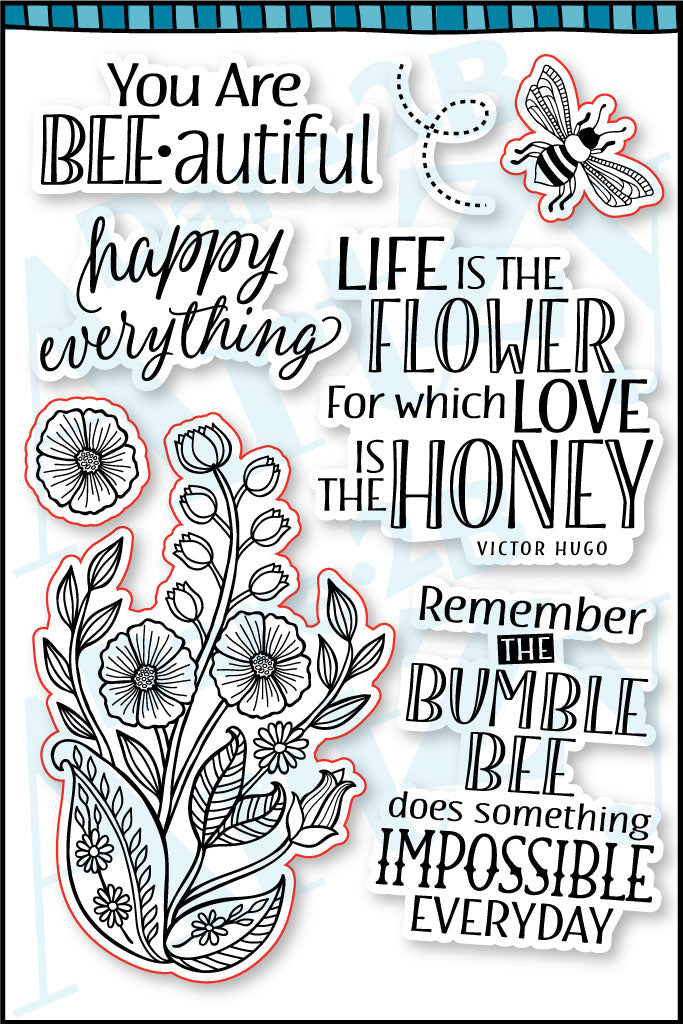 You Are
BEE•autiful
happy
everything
LIFE IS THE
FLOWER
For which LOVE
IS
THE HONEY
VICTOR HUGO
Remember
THE
BUMBLE
BEE
does something
IMPOSSIBLE
EVERYDAY